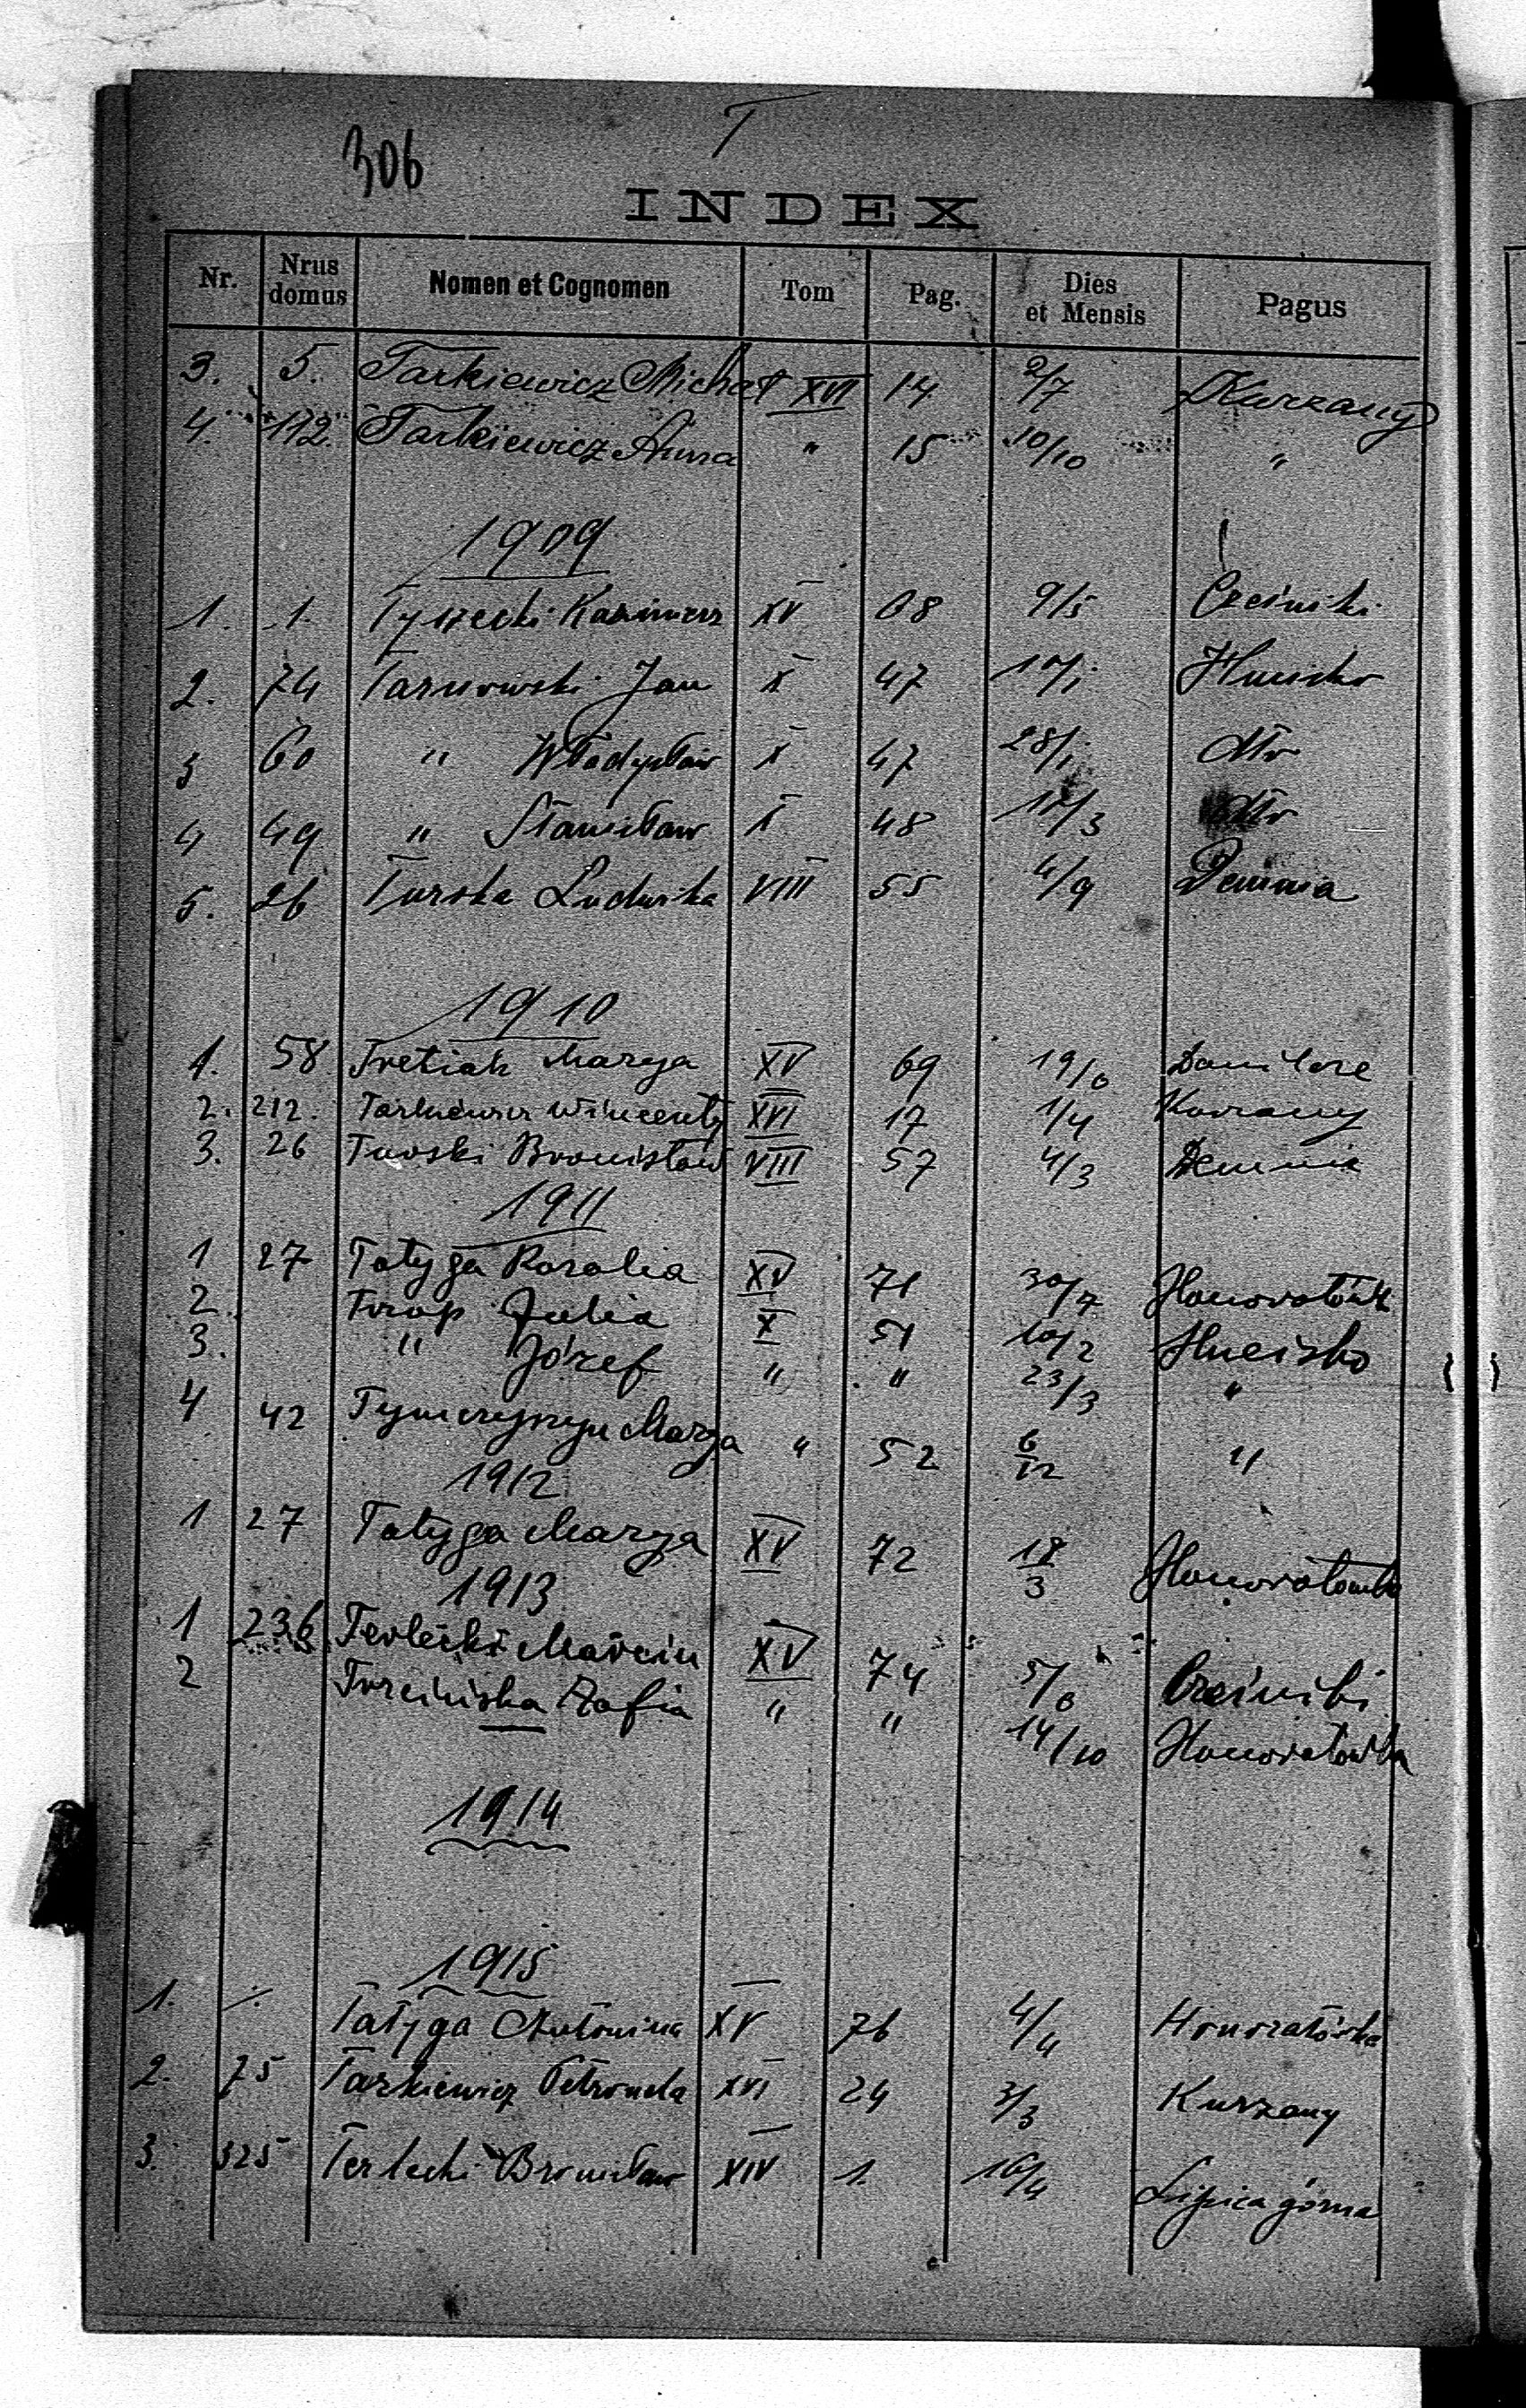 306
T
INDEX
Nr. Nrus domus Nomen et Cognomen Tom Pag. Dies et Mensis Pagus
3. 5. Tarkiewicz Michał XVI 14 2/7 Kurzany
4. 112. Tarkiewicz Anna " 15 10/10 "
1909
1. 1. Kazimierz XV 68 9/5
2. 74 Tarnowski Jan X 47 10/1 Hucisko
3 60 " Władysław X 47 28/1 dtto
4 49 " Stanisław X 48 /3 dtto
5. 26 Turska Ludwika VIII 55 4/9 Demnia
1910
1. 58 Tretiak Marya XV 69 19/6
2. 212. Wincenty XVI 17 1/4 Kurzany
3. 26 Turski Bronisław VIII 57 4/3 Demnia
1911
1 27 Tatyga Rozalia XV 71 30/7
2. Julia X 51 10/2 Hucisko
3. " Józef " " 23/3 "
4 42 Marya " 52 6/12 "
1912
1 27 Tatyga Marya XV 72 18/3
1913
1 236 Terlecki Marcin XV 74 5/6
2 Zofia " " 14/10 Honoratówka
1914
1915
1. /. Tatyga Antonina XV 76 4/4 Honoratówka
2. 75 Tarkiewicz Petronela XVI 24 3/3 Kurzany
3. 325 Terlecki Bronisław XIV 1. /4 Lipica górna